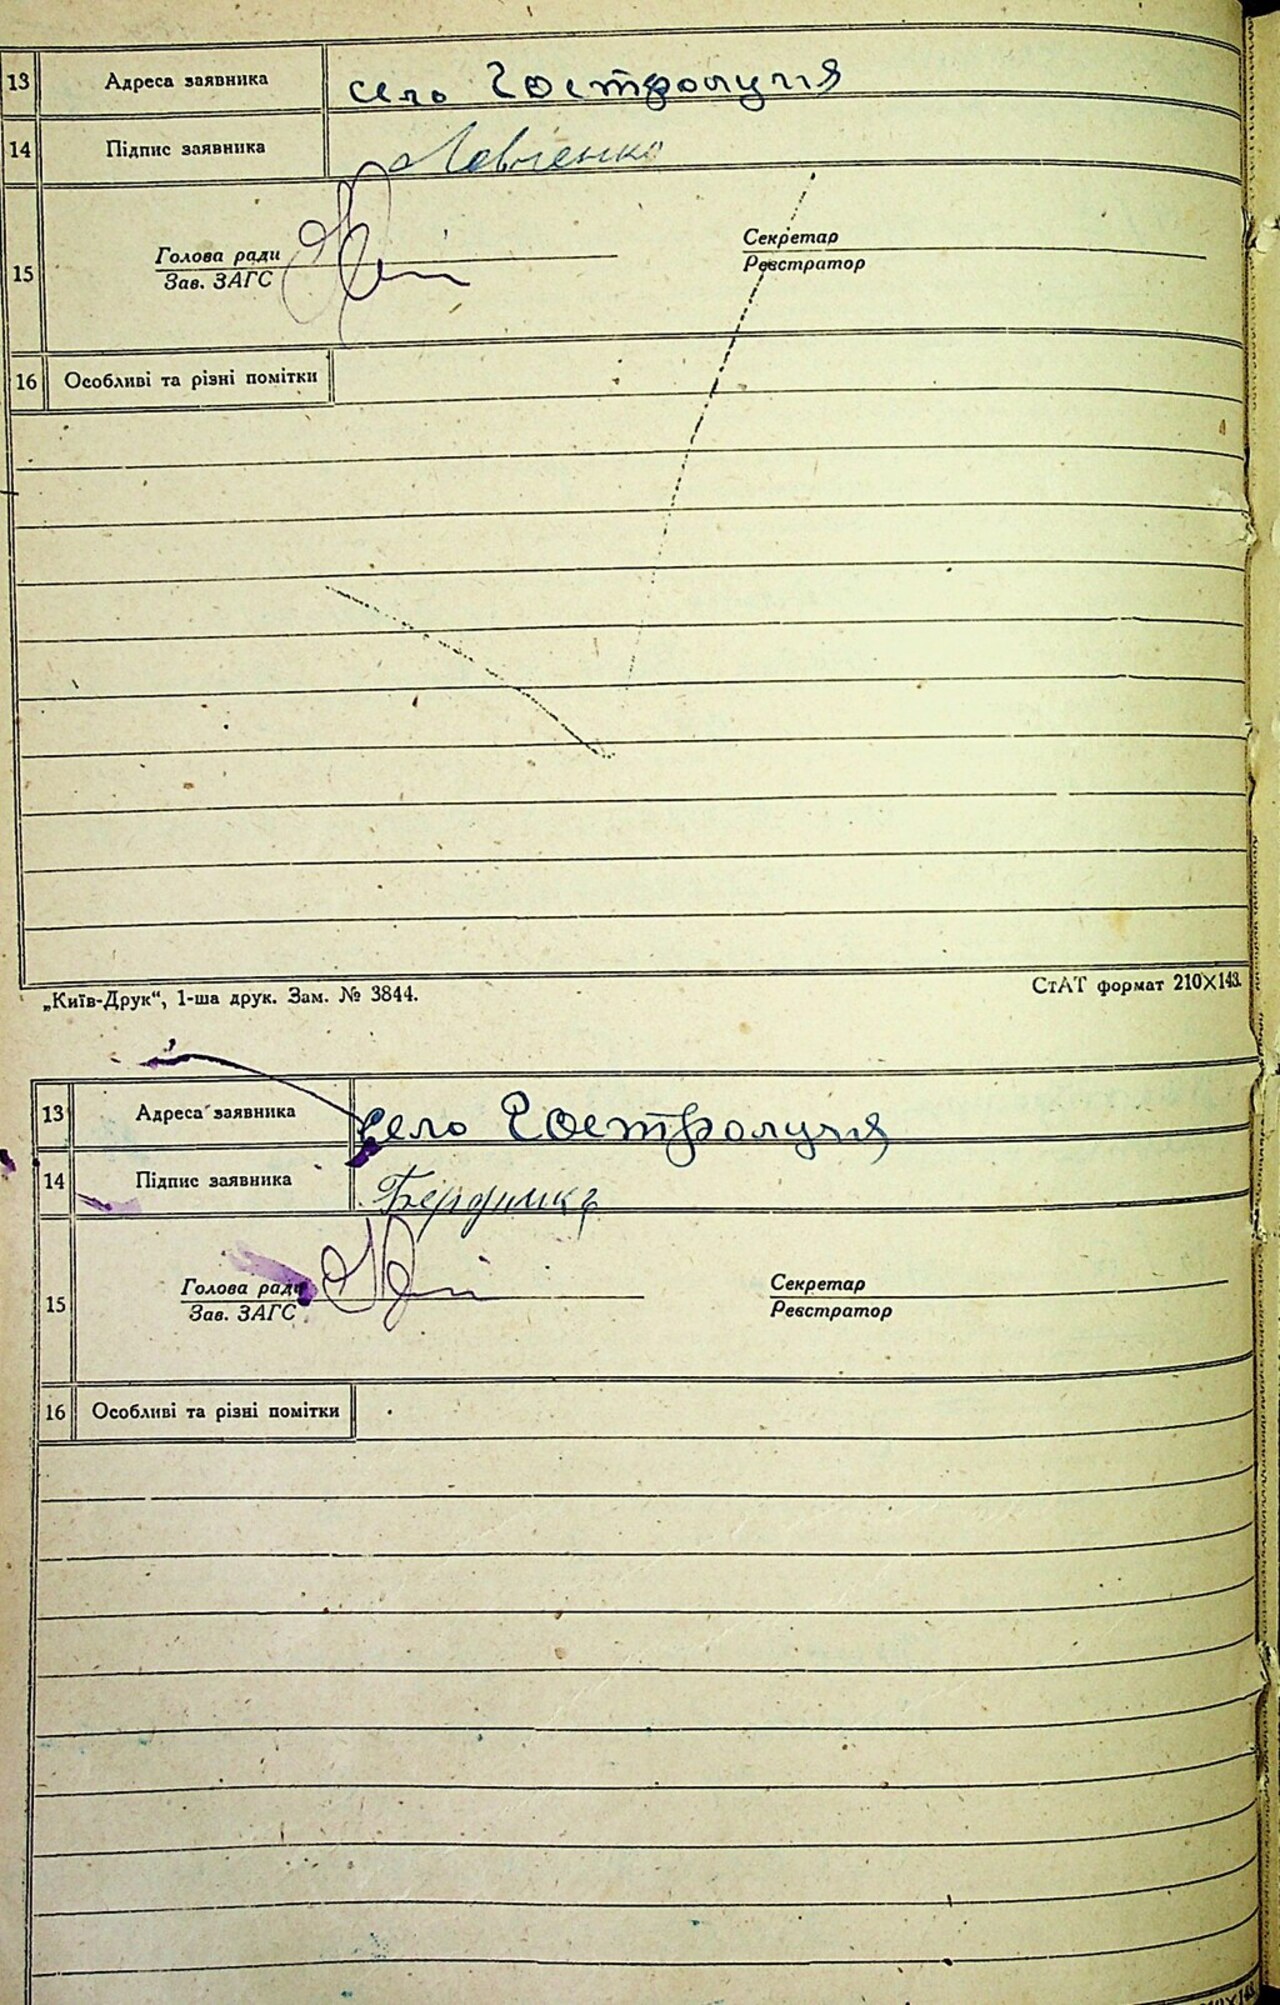 13 Адреса заявника село Гостролуччя
14 Підпис заявника Левченко
Голова ради Секретар
15
Зав. ЗАГС Реєстратор
16 Особливі та різні помітки
„Київ-Друк“, 1-ша друк. Зам. № 3844. СтАТ формат 210X143.
13 Адреса заявника село Гостролуччя
14 Підпис заявника
Голова ради Секретар
15
Зав. ЗАГС Реєстратор
16 Особливі та різні помітки